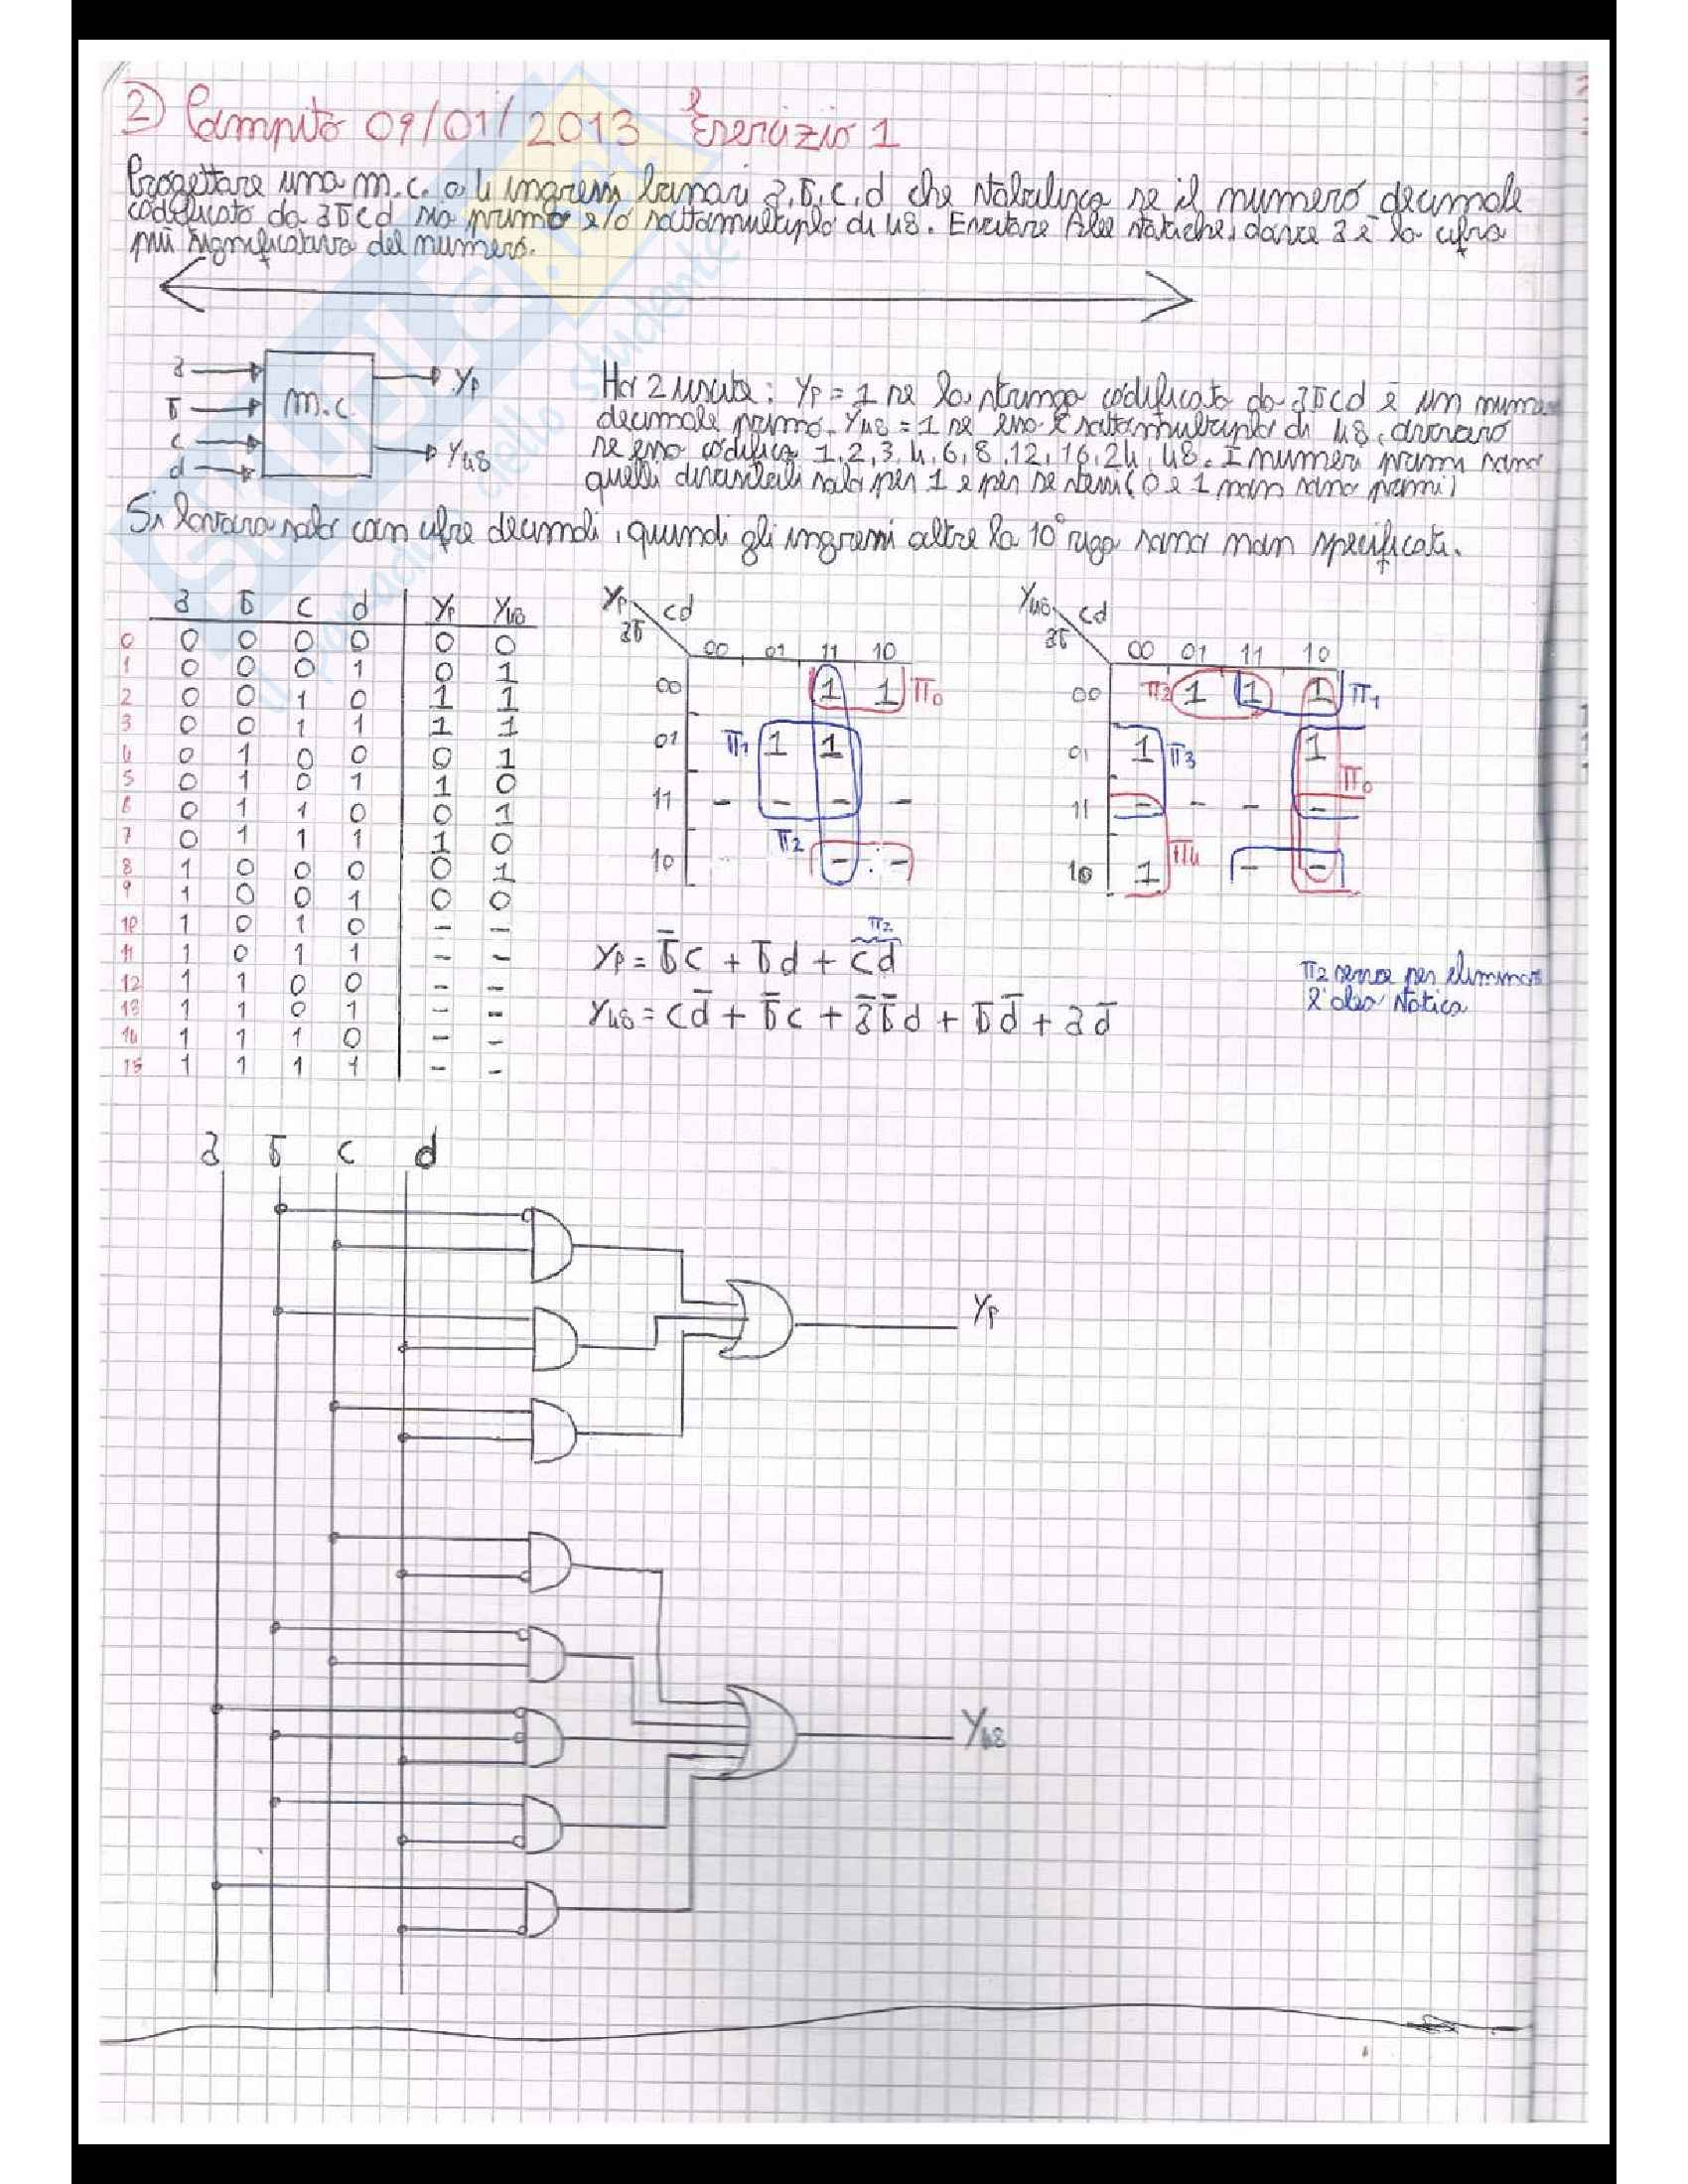 2) Compito 09/01/2013 Esercizio 1
Progettare una m.c. a 4 ingressi binari a,b,c,d che stabilisca se il numero decimale
codificato da abcd sia primo e/o sottomultiplo di 48. Evitare Alee statiche, dove a è la cifra
più significativa del numero.
a
b
c
d
m.c.
Yp
Y48
Ho 2 uscite: Yp = 1 se la stringa codificata da abcd è un numero
decimale primo. Y48 = 1 se esso è sottomultiplo di 48, ovvero
se esso codifica 1, 2, 3, 4, 6, 8, 12, 16, 24, 48. I numeri primi sono
quelli divisibili solo per 1 e per se stessi (0 e 1 non sono primi)
Si lavora solo con cifre decimali, quindi gli ingressi oltre la 10° riga sono non specificati.
a b c d Yp Y48
0 0 0 0 0 0 0
1 0 0 0 1 0 1
2 0 0 1 0 1 1
3 0 0 1 1 1 1
4 0 1 0 0 0 1
5 0 1 0 1 1 0
6 0 1 1 0 0 1
7 0 1 1 1 1 0
8 1 0 0 0 0 1
9 1 0 0 1 0 0
10 1 0 1 0 - -
11 1 0 1 1 - -
12 1 1 0 0 - -
13 1 1 0 1 - -
14 1 1 1 0 - -
15 1 1 1 1 - -
Yp cd
ab
00 01 11 10
00 1 1 π0
01 π1 1 1
11 - - - -
10 π2 - -
Y48 cd
ab
00 01 11 10
00 π2 1 1 1 π1
01 1 π3 1
π0
11 - - - -
10 1 π4 - -
π2
Yp = b̅c + bd + cd
Y48 = cd̅ + b̅c + a̅b̅d + bd̅ + ad̅
π2 serve per eliminare
l'alea statica
a b c d
Yp
Y48